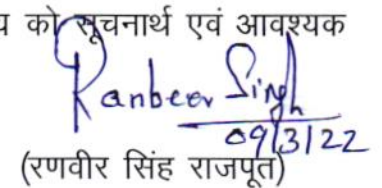 को सूचनार्थ एवं आवश्यक
Ranbeer Singh
09/3/22
(रणवीर सिंह राजपूत)